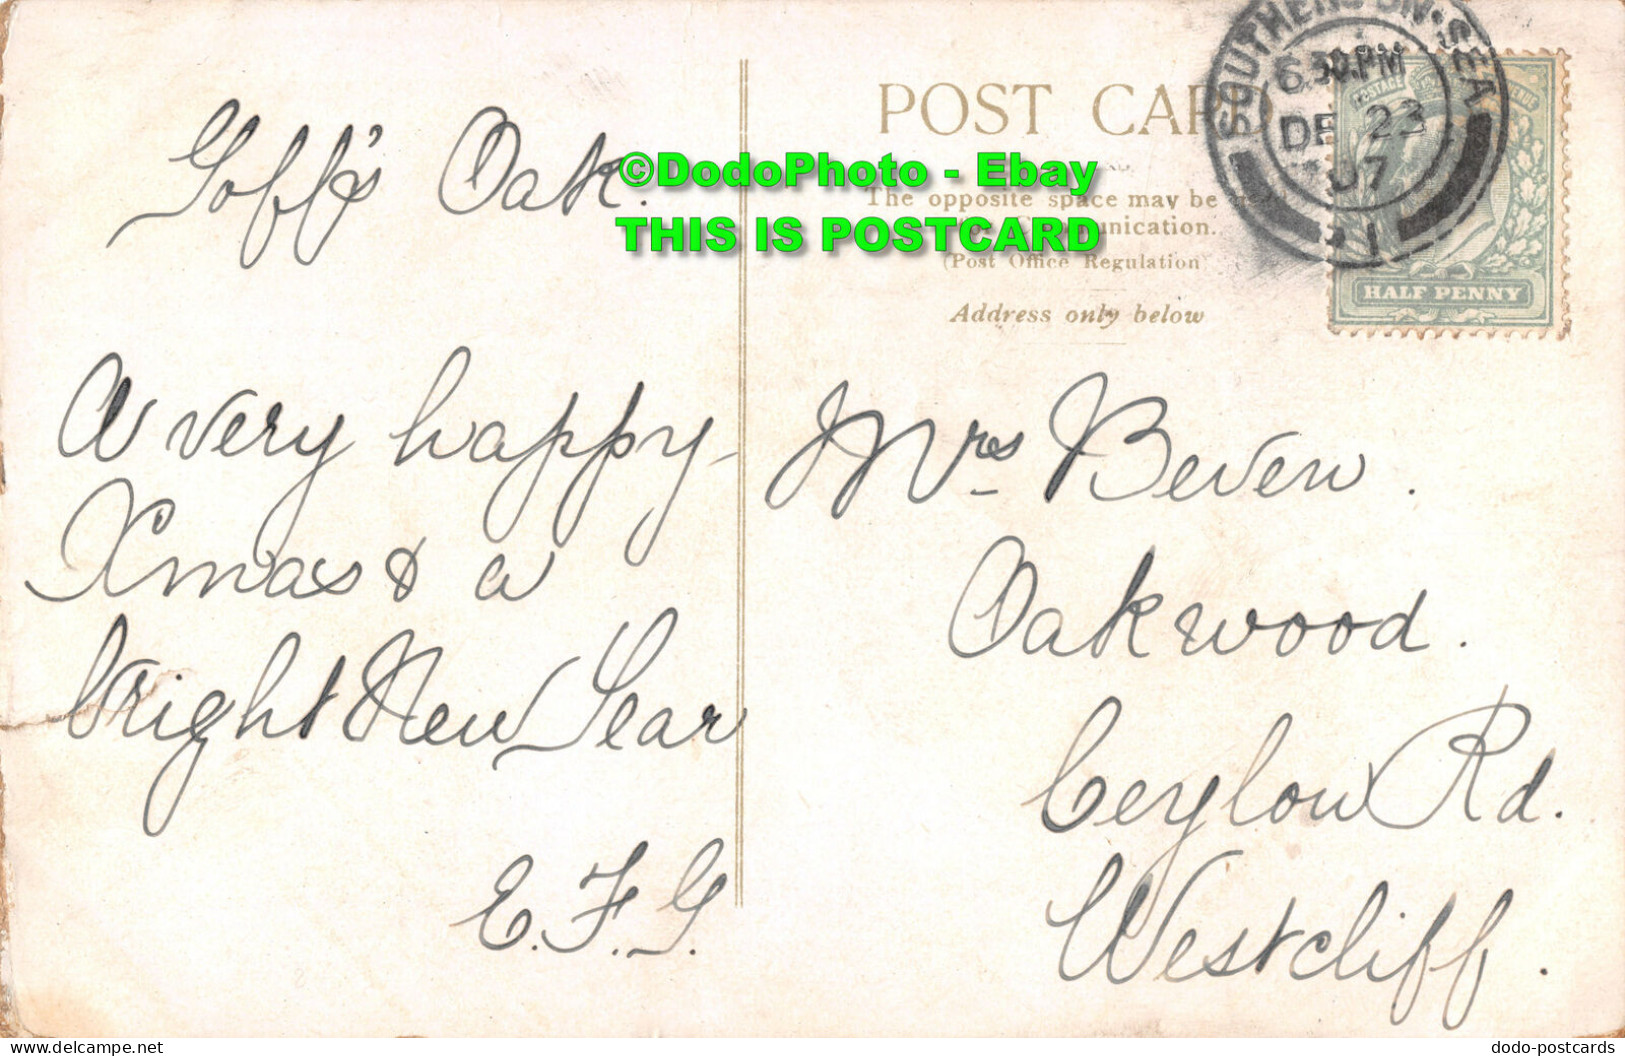 Goff's Oak.
A very happy
Xmas & a
bright New Year
E.F.G.
POST CARD
©DodoPhoto - Ebay
THIS IS POSTCARD
The opposite space may be
(Post Office Regulation)
Address only below
SOUTHEND-ON-SEA
6.30.PM
DE 23
07
HALF PENNY
Mrs Beven.
Oakwood.
Ceylon Rd.
Westcliff.
Delcampe.net
dodo-postcards